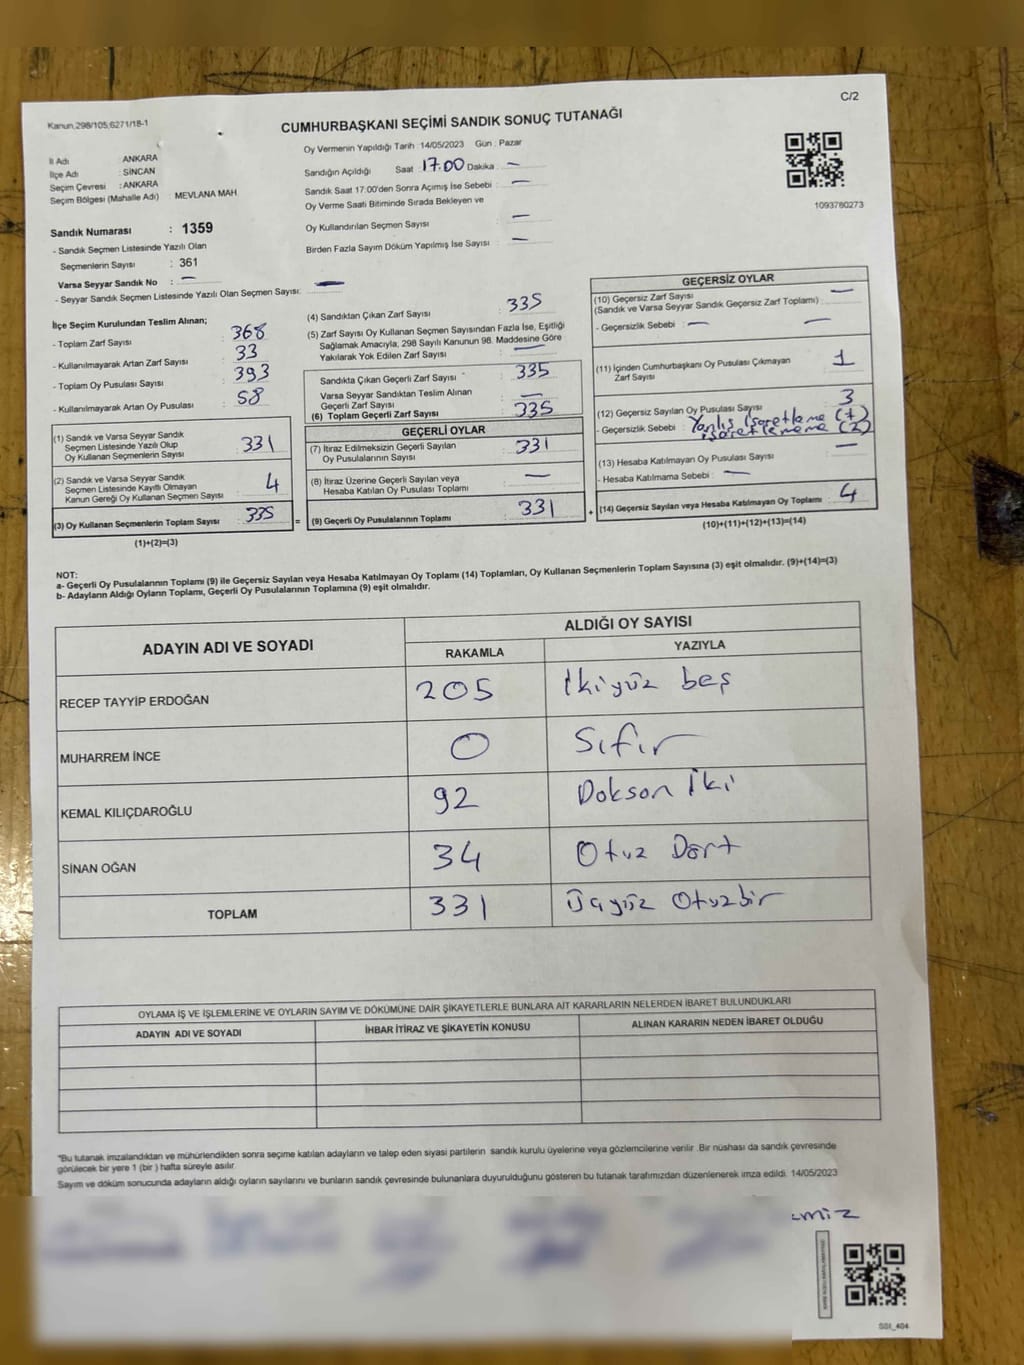 C/2
Kanun,298/105;6271/18-1
CUMHURBAŞKANI SEÇİMİ SANDIK SONUÇ TUTANAĞI
İl Adı ANKARA
İlçe Adı : SİNCAN
Seçim Çevresi : ANKARA
Seçim Bölgesi (Mahalle Adı) : MEVLANA MAH.
Oy Vermenin Yapıldığı Tarih : 14/05/2023 Gün : Pazar
Sandığın Açıldığı Saat 17.00 Dakika : —
Sandık Saat 17:00'den Sonra Açımış İse Sebebi : —
Oy Verme Saati Bitiminde Sırada Bekleyen ve
Oy Kullandırılan Seçmen Sayısı : —
Birden Fazla Sayım Döküm Yapılmış İse Sayısı : —
1093780273
Sandık Numarası : 1359
- Sandık Seçmen Listesinde Yazılı Olan
Seçmenlerin Sayısı : 361
Varsa Seyyar Sandık No : —
- Seyyar Sandık Seçmen Listesinde Yazılı Olan Seçmen Sayısı: —
İlçe Seçim Kurulundan Teslim Alınan;
- Toplam Zarf Sayısı : 368
- Kullanılmayarak Artan Zarf Sayısı : 33
- Toplam Oy Pusulası Sayısı : 393
- Kullanılmayarak Artan Oy Pusulası : 58
(1) Sandık ve Varsa Seyyar Sandık
Seçmen Listesinde Yazılı Olup
Oy Kullanan Seçmenlerin Sayısı : 331
(2) Sandık ve Varsa Seyyar Sandık
Seçmen Listesinde Kayıtlı Olmayan
Kanun Gereği Oy Kullanan Seçmen Sayısı : 4
(3) Oy Kullanan Seçmenlerin Toplam Sayısı : 335
(1)+(2)=(3)
(4) Sandıktan Çıkan Zarf Sayısı : 335
(5) Zarf Sayısı Oy Kullanan Seçmen Sayısından Fazla İse, Eşitliği
Sağlamak Amacıyla, 298 Sayılı Kanunun 98. Maddesine Göre
Yakılarak Yok Edilen Zarf Sayısı : —
Sandıkta Çıkan Geçerli Zarf Sayısı : 335
Varsa Seyyar Sandıktan Teslim Alınan
Geçerli Zarf Sayısı : —
(6) Toplam Geçerli Zarf Sayısı : 335
GEÇERLİ OYLAR
(7) İtiraz Edilmeksizin Geçerli Sayılan
Oy Pusulalarının Sayısı : 331
(8) İtiraz Üzerine Geçerli Sayılan veya
Hesaba Katılan Oy Pusulası Toplamı : —
= (9) Geçerli Oy Pusulalarının Toplamı : 331
GEÇERSİZ OYLAR
(10) Geçersiz Zarf Sayısı —
(Sandık ve Varsa Seyyar Sandık Geçersiz Zarf Toplamı) :
- Geçersizlik Sebebi : — —
(11) İçinden Cumhurbaşkanı Oy Pusulası Çıkmayan
Zarf Sayısı : 1
(12) Geçersiz Sayılan Oy Pusulası Sayısı : 3
- Geçersizlik Sebebi : Yanlış İşaretleme (1)
işaretlememe (2)
(13) Hesaba Katılmayan Oy Pusulası Sayısı : —
- Hesaba Katılmama Sebebi : —
+ (14) Geçersiz Sayılan veya Hesaba Katılmayan Oy Toplamı : 4
(10)+(11)+(12)+(13)=(14)
NOT:
a- Geçerli Oy Pusulalarının Toplamı (9) ile Geçersiz Sayılan veya Hesaba Katılmayan Oy Toplamı (14) Toplamları, Oy Kullanan Seçmenlerin Toplam Sayısına (3) eşit olmalıdır. (9)+(14)=(3)
b- Adayların Aldığı Oyların Toplamı, Geçerli Oy Pusulalarının Toplamına (9) eşit olmalıdır.
ADAYIN ADI VE SOYADI
ALDIĞI OY SAYISI
RAKAMLA YAZIYLA
RECEP TAYYİP ERDOĞAN 205 İkiyüz beş
MUHARREM İNCE 0 Sıfır
KEMAL KILIÇDAROĞLU 92 Dokson İki
SİNAN OĞAN 34 Otuz Dört
TOPLAM 331 Üçyüz Otuzbir
OYLAMA İŞ VE İŞLEMLERİNE VE OYLARIN SAYIM VE DÖKÜMÜNE DAİR ŞİKAYETLERLE BUNLARA AİT KARARLARIN NELERDEN İBARET BULUNDUKLARI
ADAYIN ADI VE SOYADI İHBAR İTİRAZ VE ŞİKAYETİN KONUSU ALINAN KARARIN NEDEN İBARET OLDUĞU
*Bu tutanak imzalandıktan ve mühürlendikten sonra seçime katılan adayların ve talep eden siyasi partilerin sandık kurulu üyelerine veya gözlemcilerine verilir. Bir nüshası da sandık çevresinde
görülecek bir yere 1 (bir) hafta süreyle asılır.
Sayım ve döküm sonucunda adayların aldığı oyların sayılarını ve bunların sandık çevresinde bulunanlara duyurulduğunu gösteren bu tutanak tarafımızdan düzenlenerek imza edildi. 14/05/2023
SSI_404